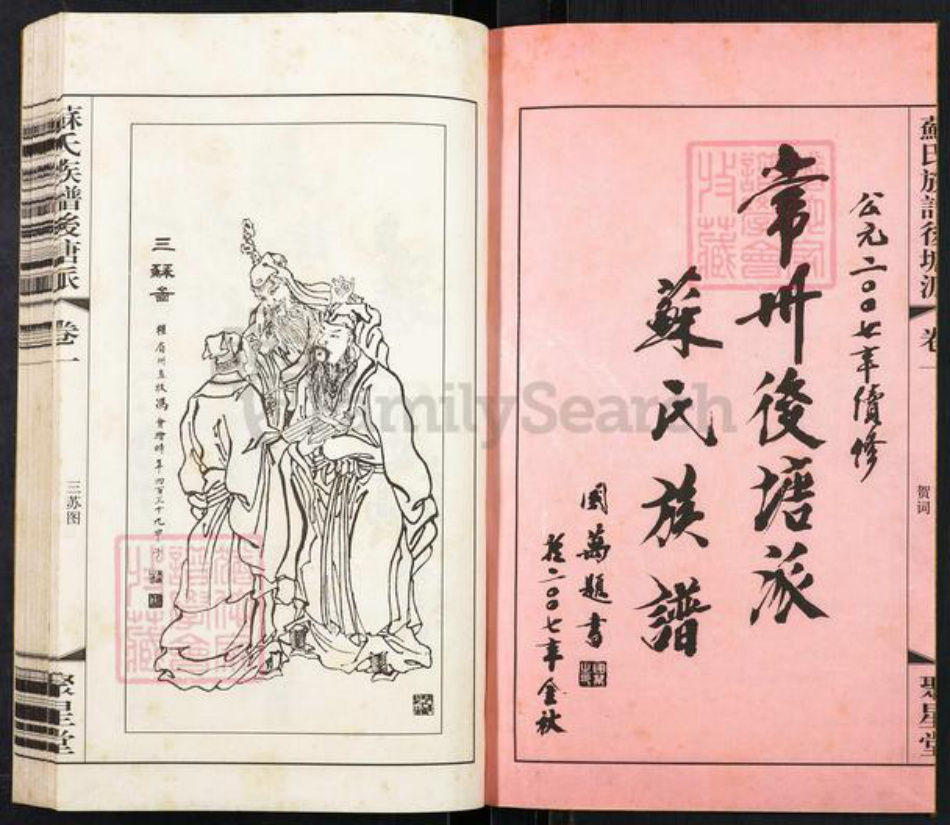 公元二〇〇七年續修
常州後塘派
蘇氏族譜
國萬題書
於二〇〇七年金秋
蘇氏族譜後塘派
卷一
贺词
聚星堂
三蘇圖
蘇氏族譜後塘派
卷一
三苏图
聚星堂
FamilySearch